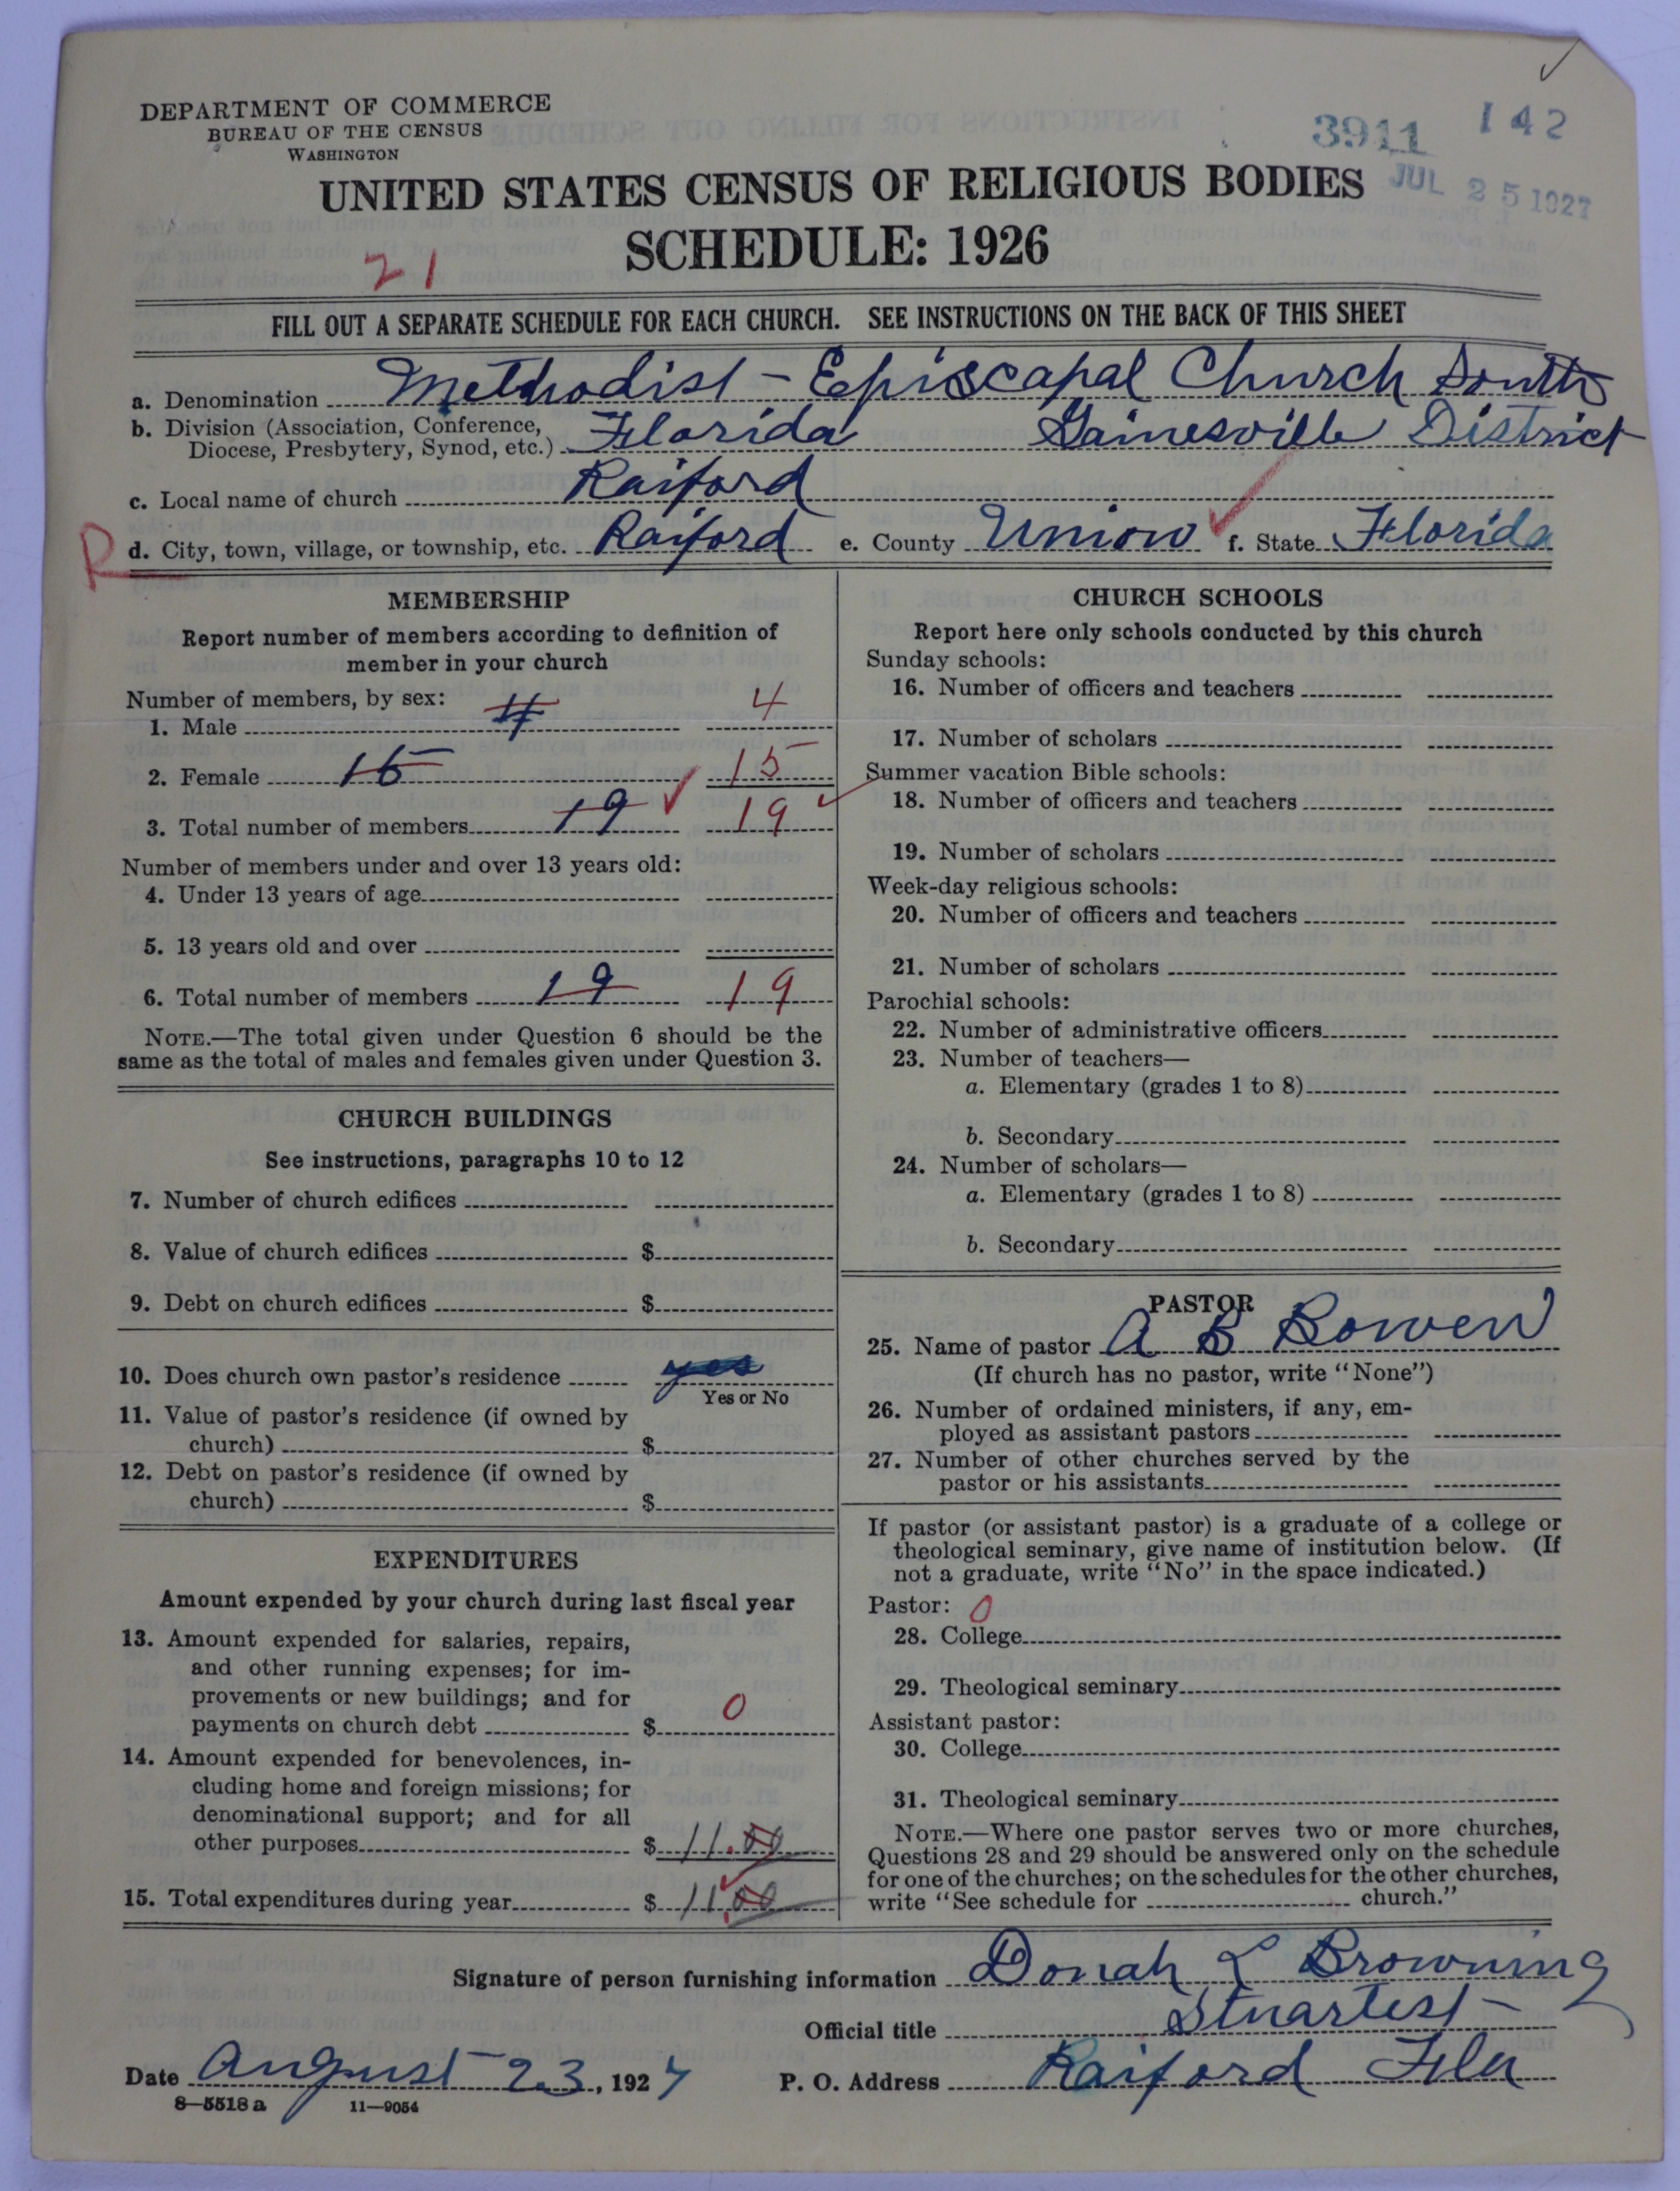 DEPARTMENT OF COMMERCE
BUREAU OF THE CENSUS
WASHINGTON
3911 142
JUL 25 1927
UNITED STATES CENSUS OF RELIGIOUS BODIES
SCHEDULE: 1926
21
FILL OUT A SEPARATE SCHEDULE FOR EACH CHURCH. SEE INSTRUCTIONS ON THE BACK OF THIS SHEET
a. Denomination Methodist - Episcapal Church South
b. Division (Association, Conference, Diocese, Presbytery, Synod, etc.) Florida Gainesville District
c. Local name of church Raiford
R d. City, town, village, or township, etc. Raiford e. County Union f. State Florida
MEMBERSHIP
Report number of members according to definition of
member in your church
Number of members, by sex:
1. Male 4 4
2. Female 15 15
3. Total number of members 19 19
Number of members under and over 13 years old:
4. Under 13 years of age
5. 13 years old and over
6. Total number of members 19 19
NOTE.—The total given under Question 6 should be the
same as the total of males and females given under Question 3.
CHURCH BUILDINGS
See instructions, paragraphs 10 to 12
7. Number of church edifices
8. Value of church edifices $
9. Debt on church edifices $
10. Does church own pastor's residence yes
Yes or No
11. Value of pastor's residence (if owned by
church) $
12. Debt on pastor's residence (if owned by
church) $
EXPENDITURES
Amount expended by your church during last fiscal year
13. Amount expended for salaries, repairs,
and other running expenses; for im-
provements or new buildings; and for
payments on church debt $ 0
14. Amount expended for benevolences, in-
cluding home and foreign missions; for
denominational support; and for all
other purposes $ 11.00
15. Total expenditures during year $ 11.00
CHURCH SCHOOLS
Report here only schools conducted by this church
Sunday schools:
16. Number of officers and teachers
17. Number of scholars
Summer vacation Bible schools:
18. Number of officers and teachers
19. Number of scholars
Week-day religious schools:
20. Number of officers and teachers
21. Number of scholars
Parochial schools:
22. Number of administrative officers
23. Number of teachers—
a. Elementary (grades 1 to 8)
b. Secondary
24. Number of scholars—
a. Elementary (grades 1 to 8)
b. Secondary
PASTOR
25. Name of pastor A B Bowen
(If church has no pastor, write "None")
26. Number of ordained ministers, if any, em-
ployed as assistant pastors
27. Number of other churches served by the
pastor or his assistants
If pastor (or assistant pastor) is a graduate of a college or
theological seminary, give name of institution below. (If
not a graduate, write "No" in the space indicated.)
Pastor: 0
28. College
29. Theological seminary
Assistant pastor:
30. College
31. Theological seminary
NOTE.—Where one pastor serves two or more churches,
Questions 28 and 29 should be answered only on the schedule
for one of the churches; on the schedules for the other churches,
write "See schedule for church."
Signature of person furnishing information Donah L Browning
Official title Stuartest
Date August 23, 1927 P. O. Address Raiford Fla
8—5518 a 11—9054